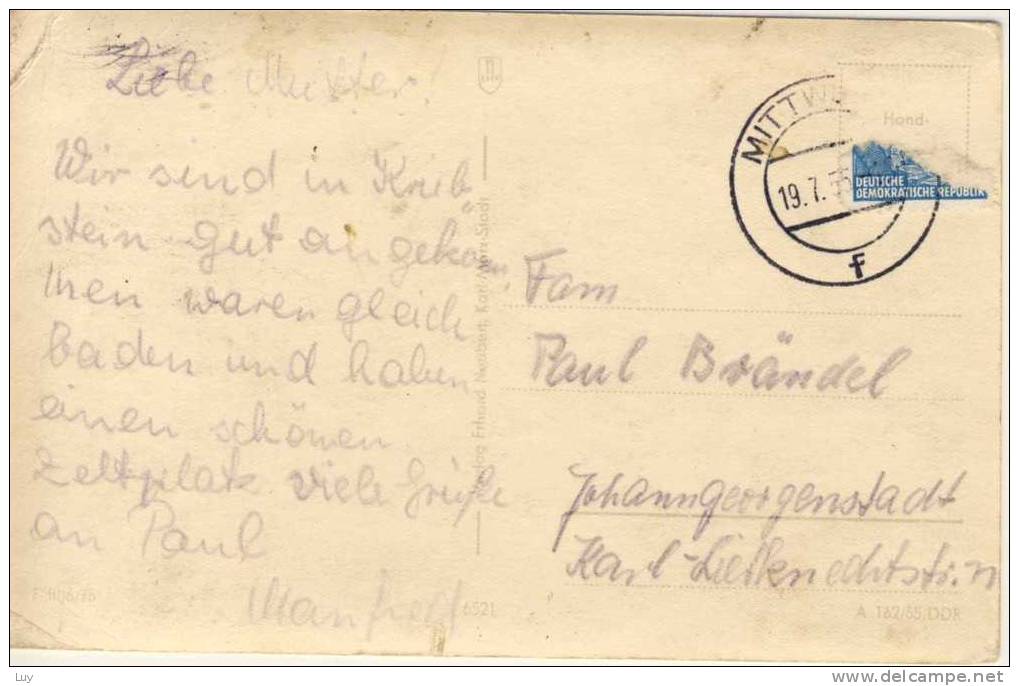 Liebe Mutter!
Wir sind in Krieb-
stein gut angekom
men waren gleich
baden und haben
einen schönen
Zeltplatz viele Grüße
an Paul
Manfred
MITTW
19.7.55
f
Hand-
DEUTSCHE
DEMOKRATISCHE REPUBLIK
Fam
Paul Brändel
Johanngeorgenstadt
Karl-Liebknechtstr.
Verlag Erhard Neubert, Karl-Marx-Stadt
6521
A 162/55 DDR
Luy
www.delcampe.net